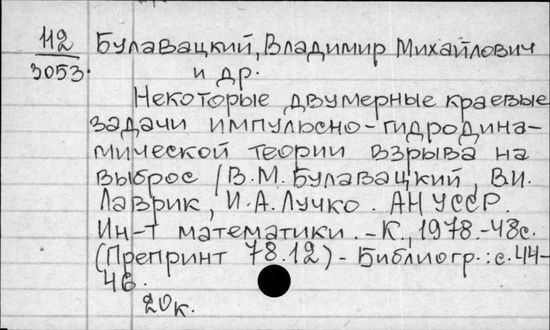 112 Булавацкий, Владимир Михайлович
3053. и др.
Некоторые двумерные краевые
задачи импульсно-гидродина-
мической теории взрыва на
выброс / В.М. Булавацкий, В.И.
Лаврик, И.А. Лучко. АН УССР.
Ин-т математики. - К., 1978. - 48с.
(Препринт 78.12) - Библиогр.: с. 44-
46.
20к.